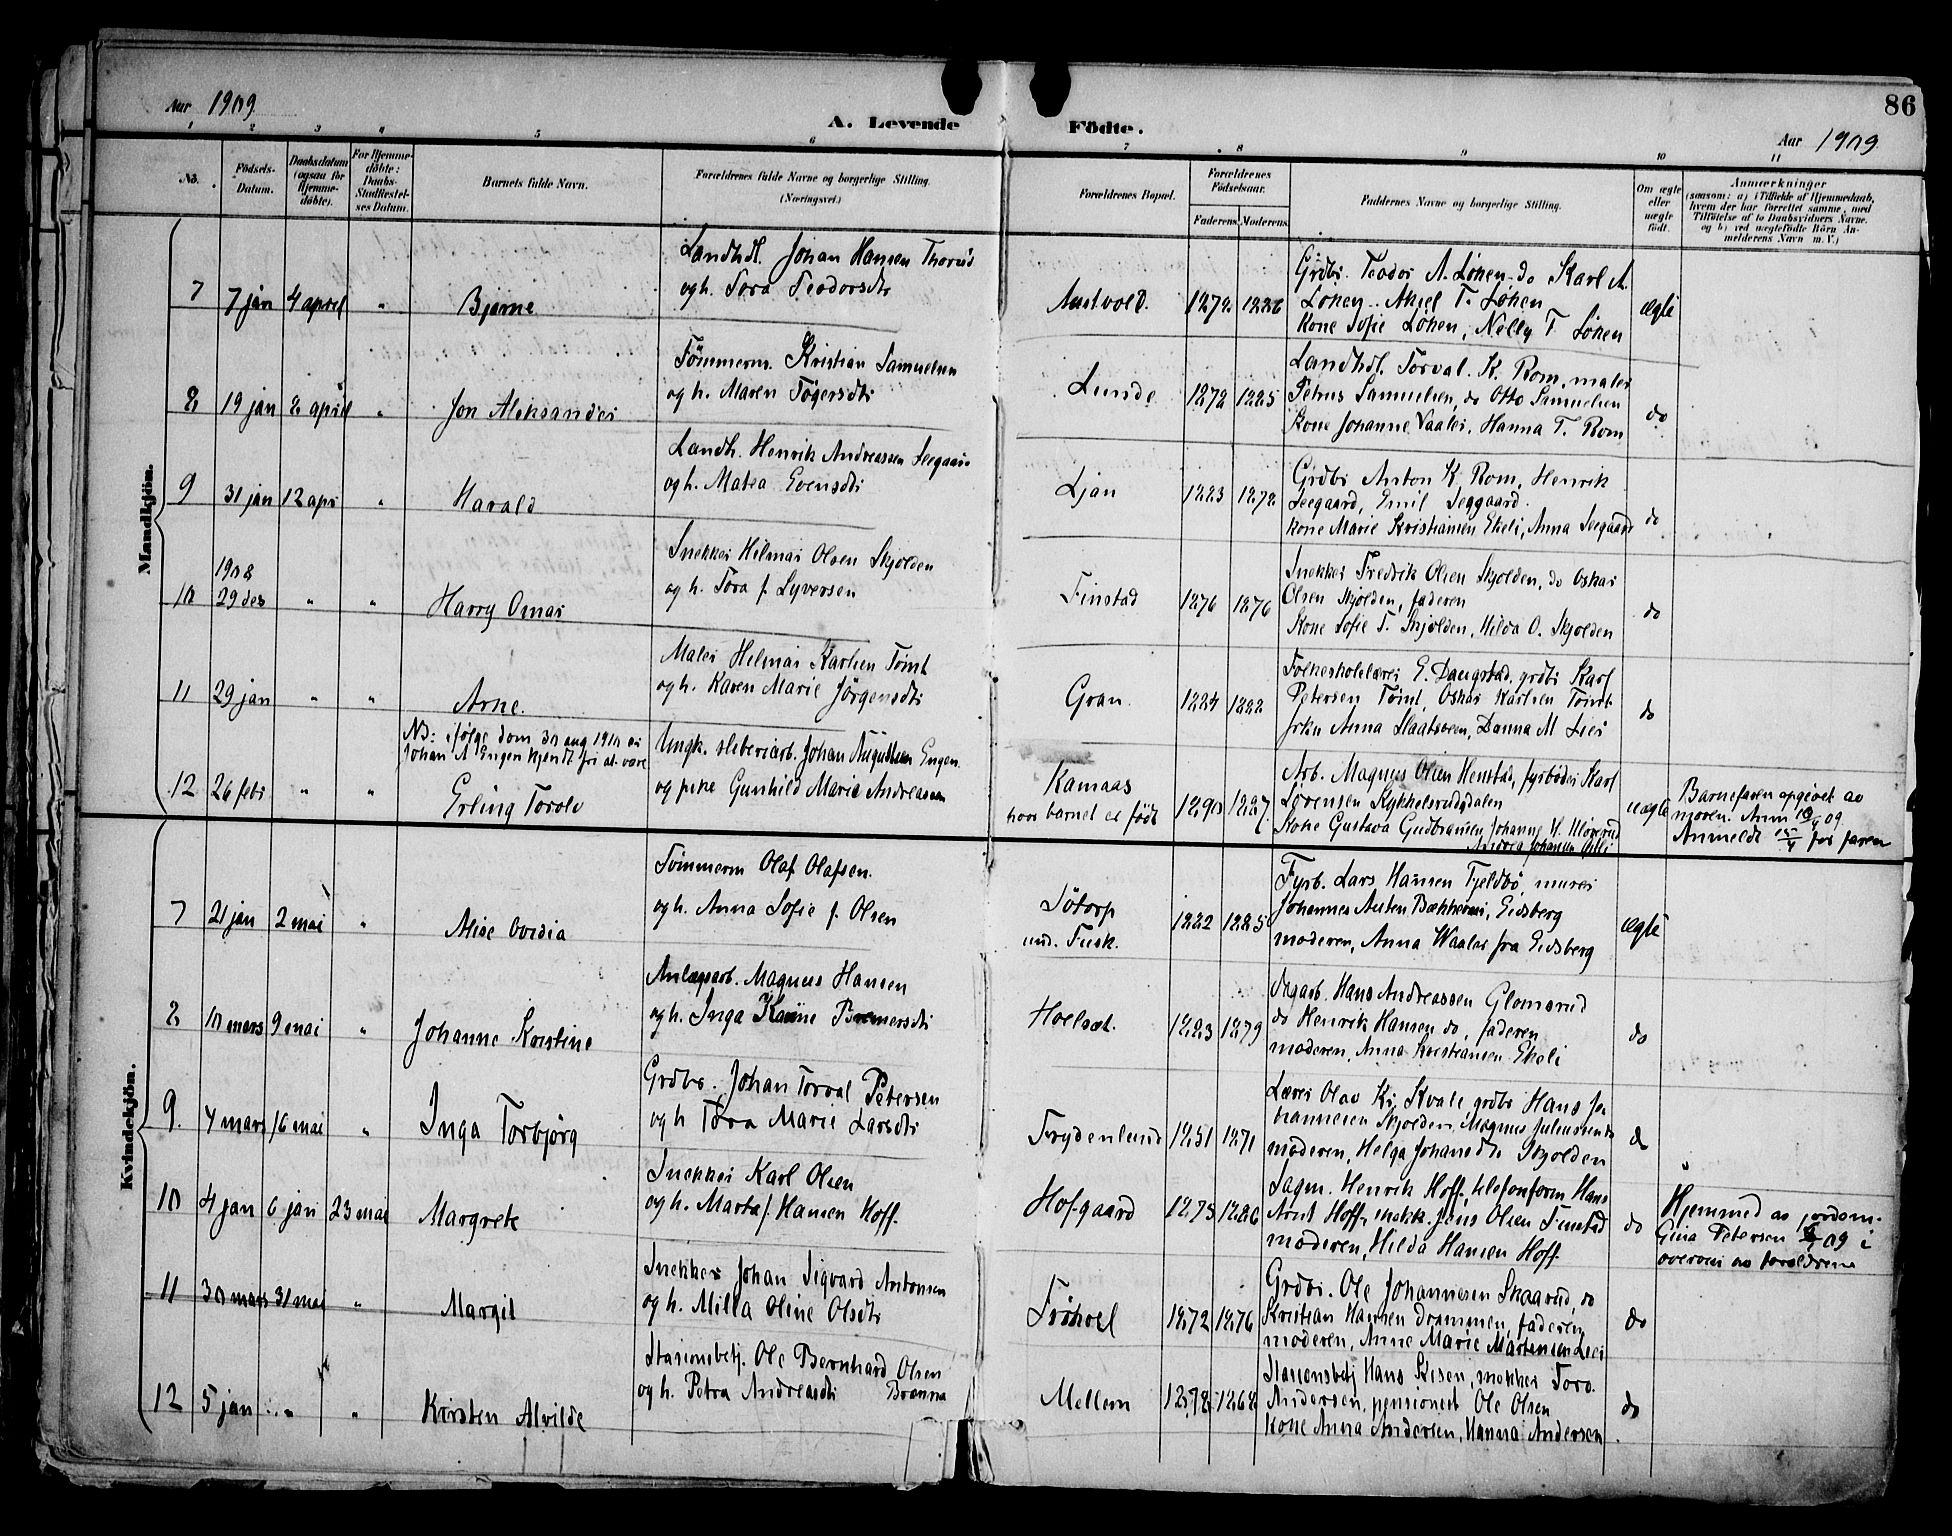 Aar 1909
A. Levende Födte.
86
Aar 1909
1 2 3 4 5 6 7 8 9 10 11
No.
Födsels-Datum.
Daabsdatum (ogsaa for Hjemme-döbte).
For Hjemme-döbte: Daabs-Stadfæstel-ses Datum.
Barnets fulde Navn.
Forældrenes fulde Navne og borgerlige Stilling. (Næringsvei.)
Forældrenes Bopæl.
Forældrenes Födselsaar.
Faderens Moderens
Faddernes Navne og borgerlige Stilling.
Om ægte eller uægte født.
Anmærkninger
(saasom: a) i Tilfælde af Hjemmedaab,
hvem der har forrettet samme, med
Tilföielse af to Daabsvidners Navne.
og b) ved uægtefödte Börn An-
melderens Navn m. V.)
Mandkjön.
7 7 jan 4 april " Bjarne
Landhdl. Johan Hansen Thorud
og h. Tora Teodorsdtr
Austvold. 1872 1886
Grdbr. Teodor A. Löken do Karl A.
Löken. Aksel T. Löken
Kone Sofie Löken, Nelly T. Löken
ægte
8 19 jan 8 april " Jon Aleksander
Tömmerm. Kristian Samuelsen
og h. Maren Tögersdtr
Lunde 1872 1885
Landhdl. Torval. K. Rom, maler
Petrus Samuelsen, do Otto Samuelsen
Kone Johanne Vaaler, Hanna T. Rom
do
9 31 jan 12 apr " Harald
Landh. Henrik Andreassen Seegaar
og h. Matea Evensdtr
Ljan 1883 1878
Grdbr Anton K. Rom, Henrik
Seegaard, Emil Seggaard.
Kone Marie Kristiansen Ekeli, Anna Seegaard
do
1908
10 29 des " " Harry Omar
Snekker Hilmar Olsen Skjolden
og h. Tora f. Syversen
Finstad 1876 1876
Snekker Fredrik Olsen Skjolden, do Oskar
Olsen Skjolden, faderen
Kone Sofie T. Skjolden, Hilda O. Skjolden
do
11 29 jan " " Arne.
Maler Hilmar Karlsen Tömt
og h. Karen Marie Jörgensdtr
Gran 1884 1882
Folkeskolelærer E. Daugstad, grdbr Karl
Petersen Tömt, Oskar Karlsen Tömt
frkn Anna Slaatsveen, Danna M Lier
do
NB: ifølge dom 30 aug 1910 er
Johan A Engen kjendt fri at være
12 26 febr " " Erling Torolv
Ungk. sliberiarb. Johan Augustsen Engen
og pike Gunhild Marie Andreassen
Kamaas
hvor barnet er födt 1890 1887.
Arb. Magnus Olsen Henstad, fyrböder Karl
Sörensen Kykkelsrudsdalen
Kone Gustava Gudbransen Johanne
uægte
Barnefaren opgivet av
moren. Anm 09
Anmeldt for faren
Kvindekjön.
7 21 jan 2 mai " Alise Ovidia
Tömmerm Olaf Olafsen.
og h. Anna Sofie f. Olsen
Sötorp
und. Fusk. 1882 1885
Fyrb. Lars Hansen Fjeldbö, murer
Johannes Austen Bækkevar, Eidsberg
moderen, Anna Waaler fra Eidsberg
ægte
8 10 mars 9 mai " Johanne Kristine
Anlægsarb. Magnus Hansen
og h. Inga Karine Bremersdtr
Hoelsæt. 1883 1879
Sagarb. Hans Andreassen Glomsrud
do Henrik Hansen do, faderen
moderen, Anna Kristiansen Ekeli
do
9. 4 mars 16 mai " Inga Torbjörg
Grdbr. Johan Torval Petersen
og h Tora Marie Larsdtr
Frydenlund 1851 1871
Lærer Olav Kr. Kvale, grdbr Hans Jo-
hannesen Skjolden, Magnus Juliussen do
moderen, Helga Johansdtr Skjolden
do
10 4 jan 6 jan 23 mai Margrete
Snekker Karl Olsen
og h. Marta f. Hansen Hoff.
Hofgaard 1873 1886
Sagm. Henrik Hoff, telefonform Hans
Arnt Hoff, snekk. Jens Olsen Finstad
moderen, Hilda Hansen Hoff.
do
Hjemmed av jordm.
Gina Petersen 09 i
overvær av foreldrene
11 30 mars 31 mai " Margit
Snekker Johan Sigvard Antonsen
og h. Milla Oline Olsdtr
Fröhoel 1872 1876
Grdbr. Ole Johannesen Skaarud, do
Kristian Hansen Drammen, faderen,
moderen, Anne Marie Martensen Lier
do
12 5 jan " " Kirsten Alvilde
Stasionsbetj. Ole Bernhard Olsen
og h. Petra Andreasdtr Brænna
Mellem 1878 1868
Stasionsbetj Hans Risen, snekker Toro.
Andersen, pensionert Ole Olsen
Kone Anna Andersen, Hanna Andersen.
do